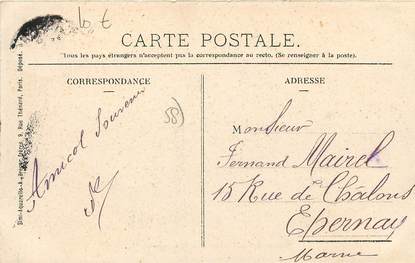 10 €
CARTE POSTALE.
Tous les pays étrangers n'acceptent pas la correspondance au recto. (Se renseigner à la poste).
CORRESPONDANCE
ADRESSE
58)
Amical Souvenir
Monsieur
Fernand Mairel
15 Rue de Châlons
Epernay
Marne
9, Rue Thénard, Paris. Déposé.